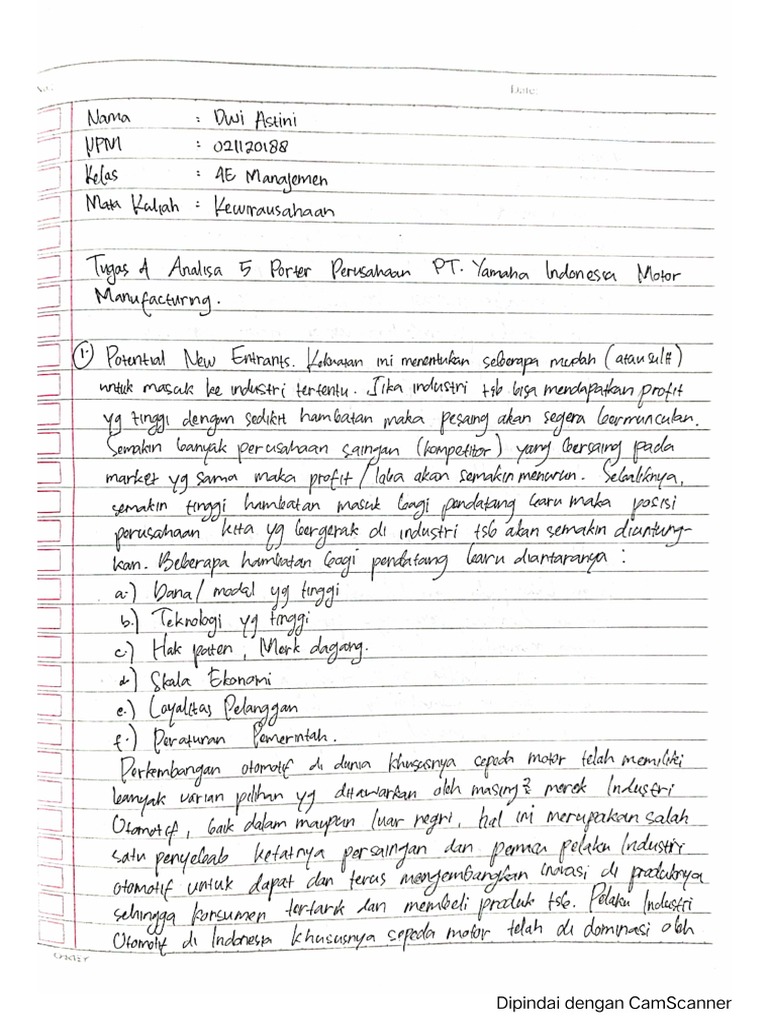 Date:
Nama : Dwi Astini
NPM : 021120188
Kelas : 4E Manajemen
Mata Kuliah : Kewirausahaan
Tugas 4 Analisa 5 Porter Perusahaan PT. Yamaha Indonesia Motor
Manufacturing.
1. Potential New Entrants. Kekuatan ini menentukan seberapa mudah (atau sulit)
untuk masuk ke industri tertentu. Jika industri tsb bisa mendapatkan profit
yg tinggi dengan sedikit hambatan maka pesaing akan segera bermunculan.
Semakin banyak perusahaan saingan (kompetitor) yang bersaing pada
market yg sama maka profit / laba akan semakin menurun. Sebaliknya,
semakin tinggi hambatan masuk bagi pendatang baru maka posisi
perusahaan kita yg bergerak di industri tsb akan semakin diuntung-
kan. Beberapa hambatan bagi pendatang baru diantaranya :
a.) Dana / modal yg tinggi
b.) Teknologi yg tinggi
c.) Hak paten, Merk dagang.
d.) Skala Ekonomi
e.) Loyalitas Pelanggan
f.) Peraturan Pemerintah.
Perkembangan otomotif di dunia khususnya sepeda motor telah memiliki
banyak varian pilihan yg ditawarkan oleh masing2 merek Industri
Otomotif, baik dalam maupun luar negri, hal ini merupakan salah
satu penyebab ketatnya persaingan dan pemicu pelaku Industri
otomotif untuk dapat dan terus mengembangkan inovasi di produknya
sehingga konsumen tertarik dan membeli produk tsb. Pelaku Industri
Otomotif di Indonesia khususnya sepeda motor telah di dominasi oleh
Dipindai dengan CamScanner